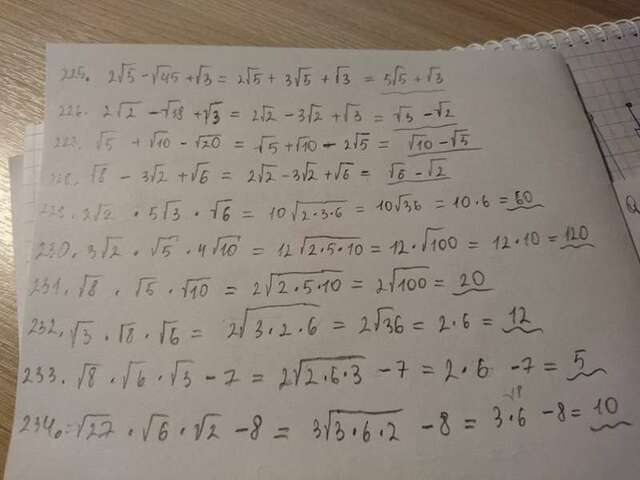 225. 2√5 - √45 + √3 = 2√5 + 3√5 + √3 = 5√5 + √3
226. 2√2 - √18 + √3 = 2√2 - 3√2 + √3 = √3 - √2
227. √5 + √10 - √20 = √5 + √10 - 2√5 = √10 - √5
228. √8 - 3√2 + √6 = 2√2 - 3√2 + √6 = √6 - √2
229. 2√2 · 5√3 · √6 = 10√2·3·6 = 10√36 = 10·6 = 60
230. 3√2 · √5 · 4√10 = 12√2·5·10 = 12·√100 = 12·10 = 120
231. √8 · √5 · √10 = 2√2·5·10 = 2√100 = 20
232. √3 · √8 · √6 = 2√3·2·6 = 2√36 = 2·6 = 12
233. √8 · √6 · √3 - 7 = 2√2·6·3 - 7 = 2·6 - 7 = 5
18
234. = √27 · √6 · √2 - 8 = 3√3·6·2 - 8 = 3·6 - 8 = 10